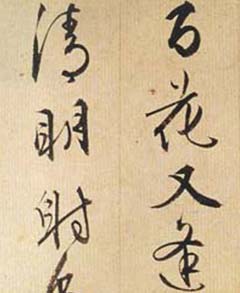 百花又逢
清明時